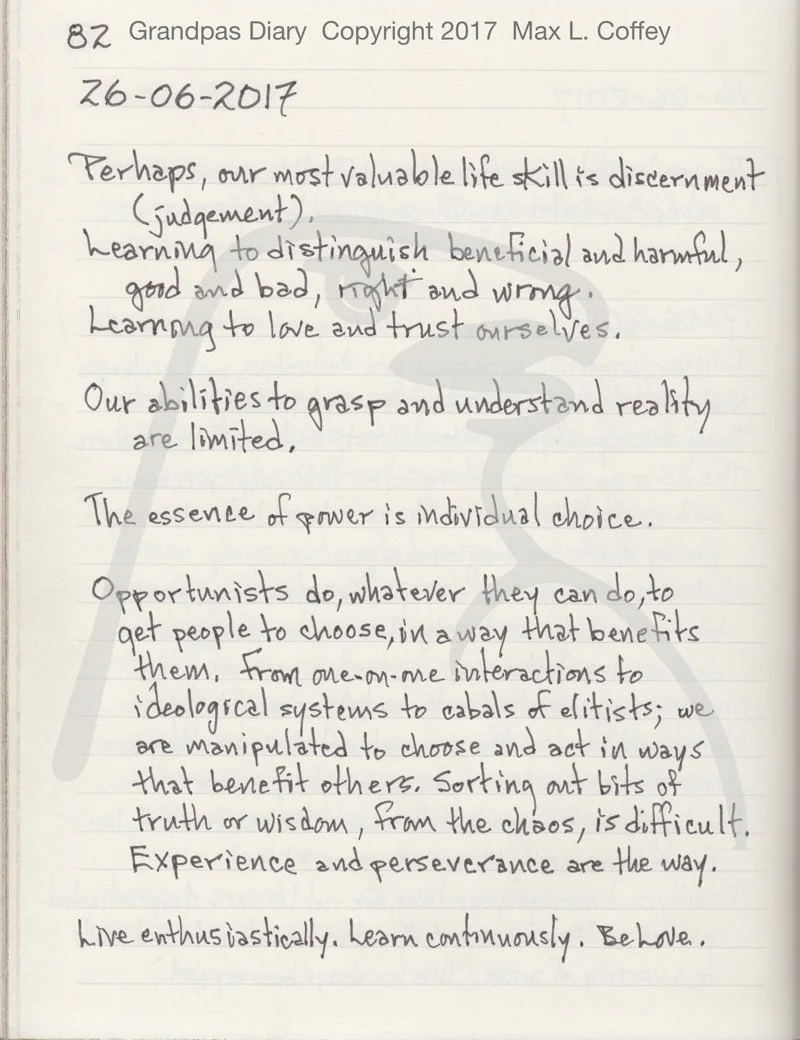 82 Grandpas Diary Copyright 2017 Max L. Coffey
26-06-2017
Perhaps, our most valuable life skill is discernment
(judgement).
Learning to distinguish beneficial and harmful,
good and bad, right and wrong.
Learning to love and trust ourselves.
Our abilities to grasp and understand reality
are limited.
The essence of power is individual choice.
Opportunists do, whatever they can do, to
get people to choose, in a way that benefits
them. From one-on-one interactions to
ideological systems to cabals of elitists; we
are manipulated to choose and act in ways
that benefit others. Sorting out bits of
truth or wisdom, from the chaos, is difficult.
Experience and perseverance are the way.
Live enthusiastically. Learn continuously. Be Love.